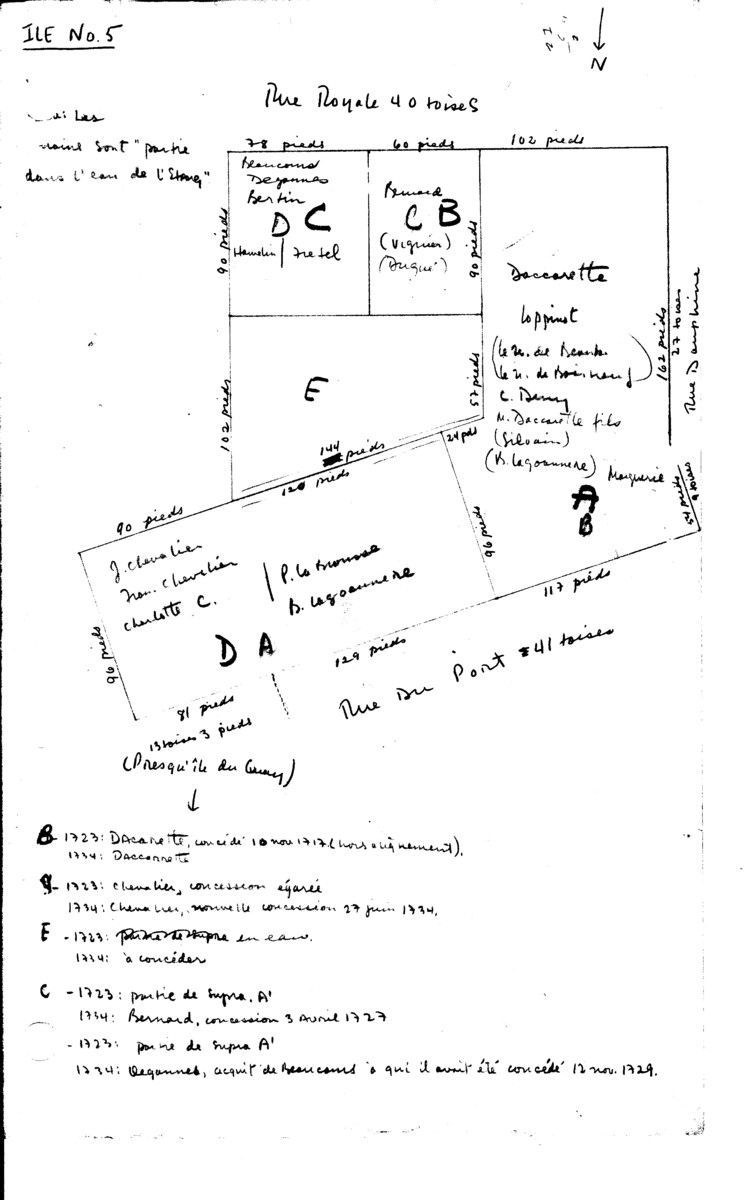 ILE No. 5
N
Rue Royale 40 toises
Les
sont "partie
dans l'eau de l'Etang"
78 pieds
60 pieds
102 pieds
Beaucours
Degannes
Bertin
D C
Hamelin | Fresel
90 pieds
Bernard
C B
(Vignier)
(Dugué)
90 pieds
Daccarette
Loppinot
C. Deny
M. Daccarette fils
(Silvain)
(B. Lagoannere)
Morguerie
A
B
162 pieds
27 toises
Rue Dauphine
54 pieds
9 toises
102 pieds
E
57 pieds
144 pieds
24 pds
120 pieds
90 pieds
J. Chevalier
Fran. Chevalier
Charlotte C.
P. La Trousse
B. Lagoannere
D A
96 pieds
96 pieds
117 pieds
129 pieds
81 pieds
13 toises 3 pieds
Rue Du Port = 41 toises
(Presqu'île du Quay)
B - 1723: DAcarette, concédé 10 nov 1717 (hors alignement).
1734: DAccarrette
- 1723: Chevalier, concession égarée
1734: Chevalier, nouvelle concession 27 juin 1734.
E - 1723: partie de supra en eau.
1734: à concéder
C - 1723: partie de Supra, A'
1734: Bernard, concession 3 Avril 1727
- 1723: partie de supra A'
1734: Degannes, acquit de Beaucours à qui il avait été concédé 12 nov. 1729.